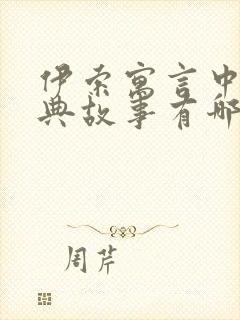 伊索寓言中
典故事有哪
周芹